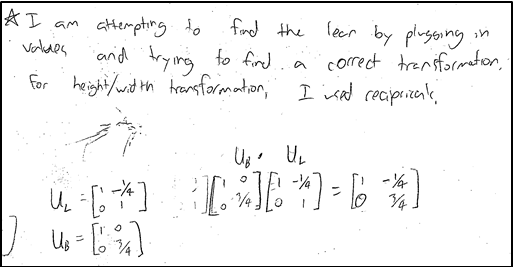 ☆ I am attempting to find the lean by plugging in
values and trying to find a correct transformation.
For height/width transformation, I used recipricals.
U_B · U_L
U_L = [1 -1/4; 0 1] [1 0; 0 3/4][1 -1/4; 0 1] = [1 -1/4; 0 3/4]
U_B = [1 0; 0 3/4]